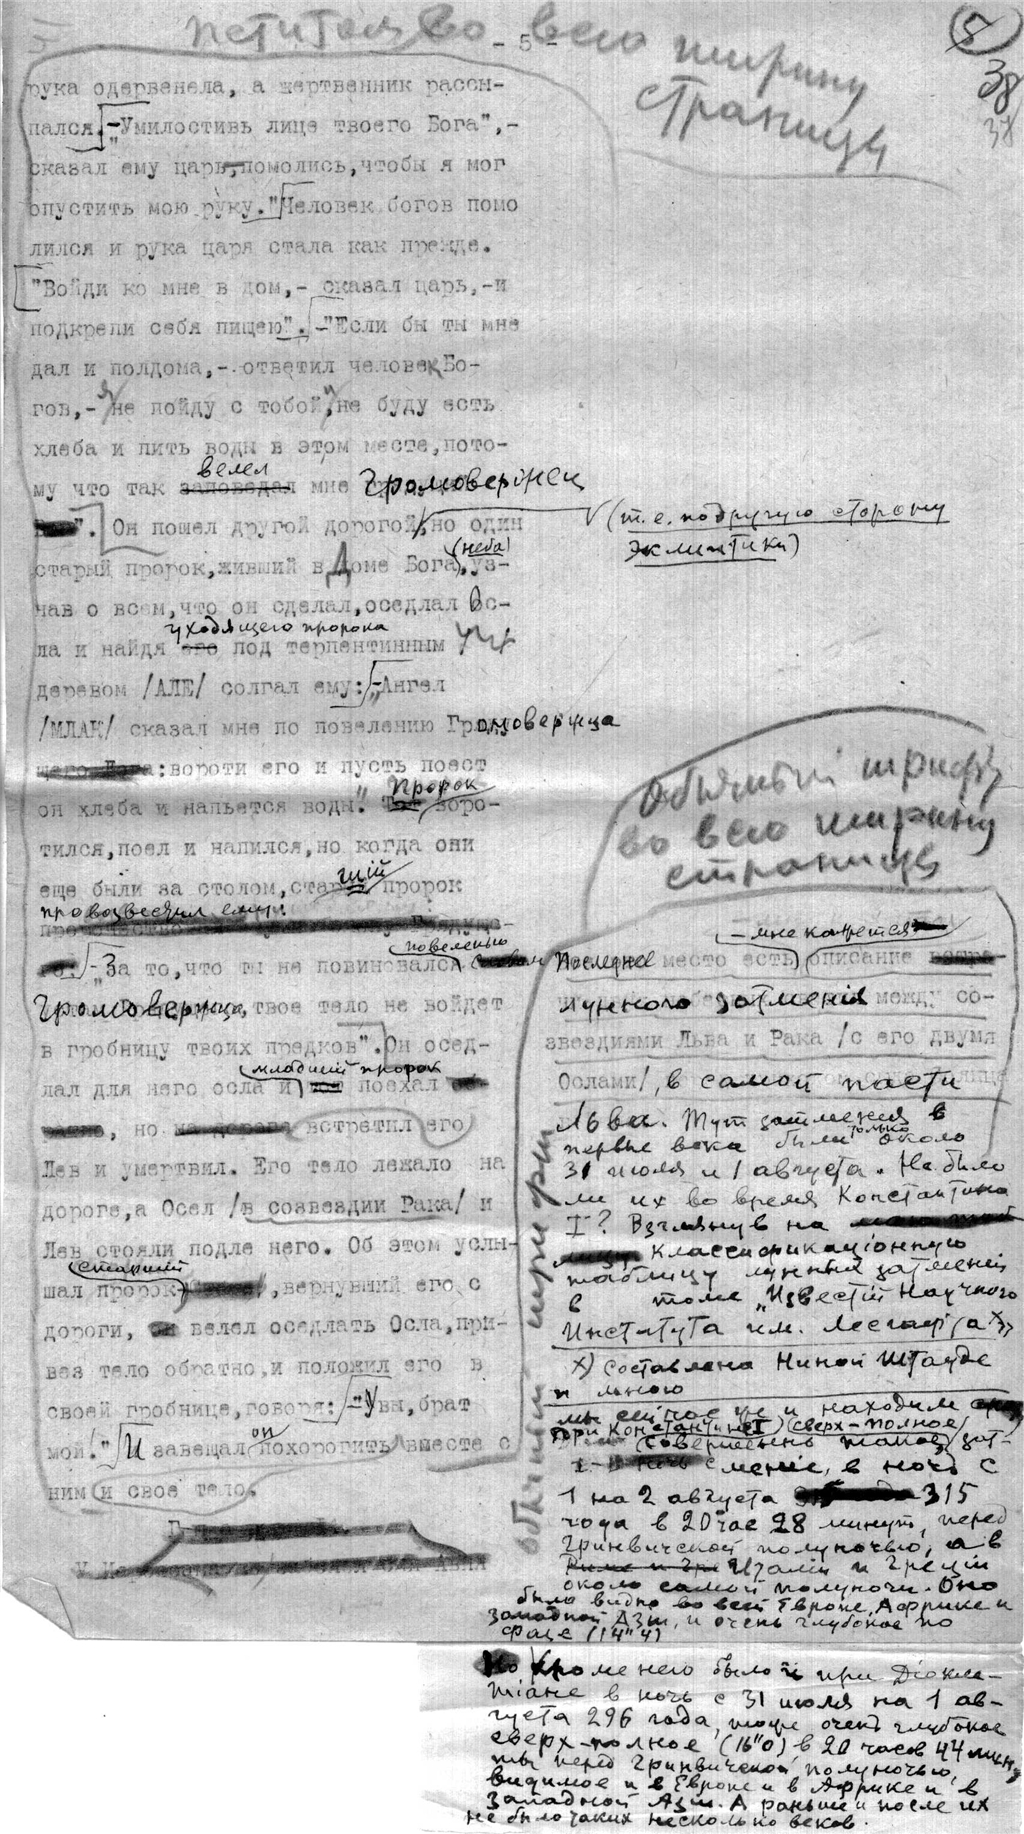 петитом во всю ширину
страницы
- 5 -
5
38
37
рука одервенела, а жертвенник рассы-
пался. -"Умилостивь лице твоего Бога",-
сказал ему царь, помолись, чтобы я мог
опустить мою руку." Человек богов помо
лился и рука царя стала как прежде.
"Войди ко мне в дом,- сказал царь,-и
подкрепи себя пищею". -"Если бы ты мне
дал и полдома,- ответил человек Бо-
гов,- я не пойду с тобой, и не буду есть
хлеба и пить воды в этом месте, пото-
велел
му что так заповедал мне Громовержец
". Он пошел другой дорогой, но один
(т.е. по другую сторону
эклиптики)
(неба)
старый пророк, живший в Доме Бога, уз-
нав о всем, что он сделал, оседлал Ос-
уходящего пророка
ла и найдя его под терпентинным
деревом /АЛЕ/ солгал ему: -"Ангел
/МЛАК/ сказал мне по повелению Громовержца
: вороти его и пусть поест
Пророк
он хлеба и напьется воды." Тот воро-
тился, поел и напился, но когда они
ший
еще были за столом, старший пророк
провозвестил ему:
повеленью
-"За то, что ты не повиновался
Громовержца, твое тело не войдет
в гробницу твоих предков". Он осед-
младший пророк
лал для него осла и тот поехал
, но на дороге встретил его
Лев и умертвил. Его тело лежало на
дороге, а Осел /в созвездии Рака/ и
Лев стояли подле него. Об этом услы-
старший
шал пророк, вернувший его с
дороги, он велел оседлать Осла, при-
вез тело обратно, и положил его в
своей гробнице, говоря: -"Увы, брат
он
мой!" И завещал похоронить вместе с
ним и свое тело.
Обычный шрифт
во всю ширину
страницы
обычный шрифт
- мне кажется -
Последнее место есть описание
лунного затменiя между со-
звездиями Льва и Рака /с его двумя
Ослами/, в самой пасти
Льва. Тут затмения в
первые века были только около
31 июля и 1 августа. Не было
ли их во время Константина
I? Взглянув на
классификацiонную
таблицу лунных затменiй
в томе „Известiй Научного
Института им. Лесгафта x)"
x) Составлена Ниной Штауде
и мною
мы сейчас же и находим
при Константине I (сверх-полное)
совершенно такое зат-
менiе, в ночь с
1 на 2 августа 315
года в 20 час 28 минут, перед
Гринвичской полуночью, а в
Риме и Гре Италiи и Грецiи
около самой полуночи. Оно
было видно во всей Европе, Африке и
западной Азiи, и очень глубокое по
фазе (14"4)
Но кроме него было и при Дiокле-
тiане в ночь с 31 июля на 1 ав-
густа 296 года, тоже очень глубокое
сверх-полное (16"0) в 20 часов 44 мину-
ты перед Гринвичской полуночью,
видимое и в Европе и в Африке и в
Западной Азiи. А раньше и после их
не было таких несколько веков.